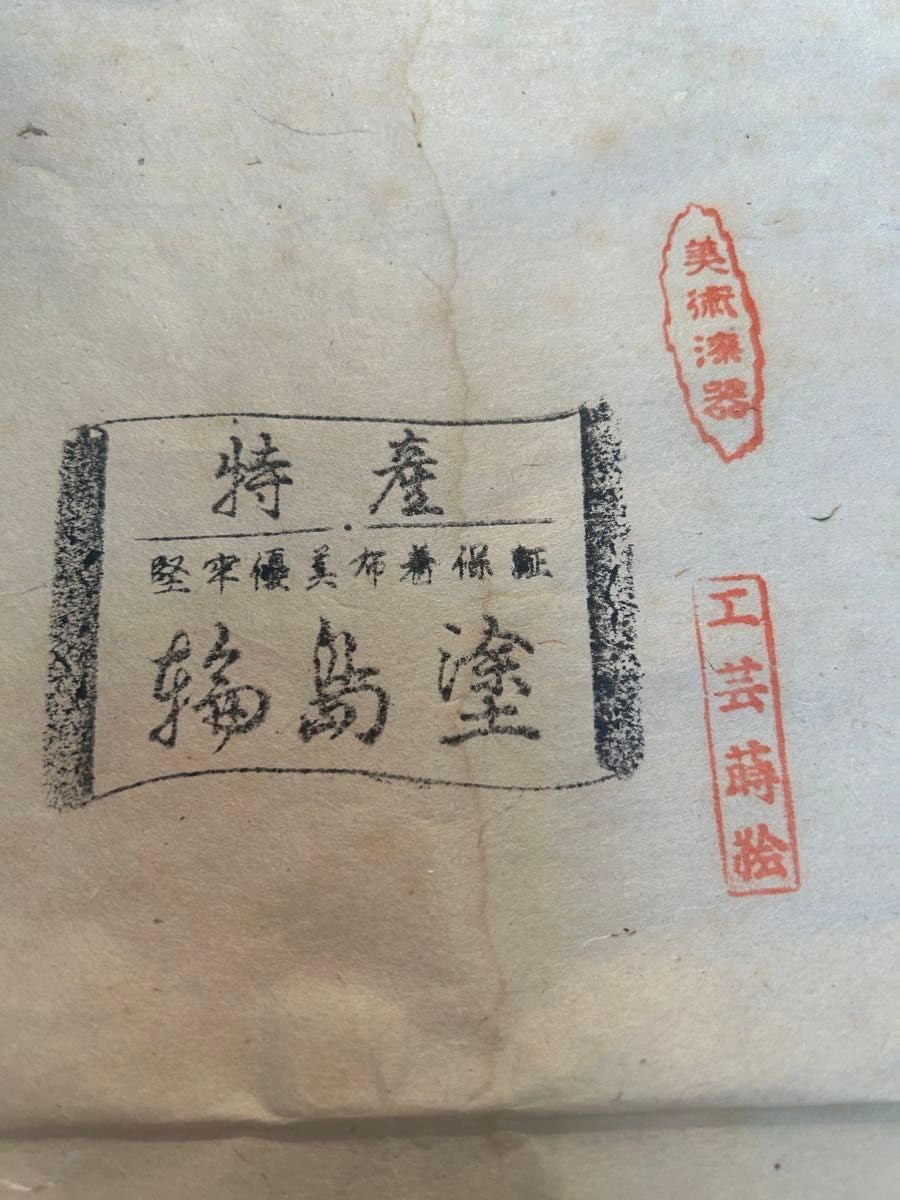 特産
堅牢優美布着保証
輪島塗
美術漆器
工芸蒔絵